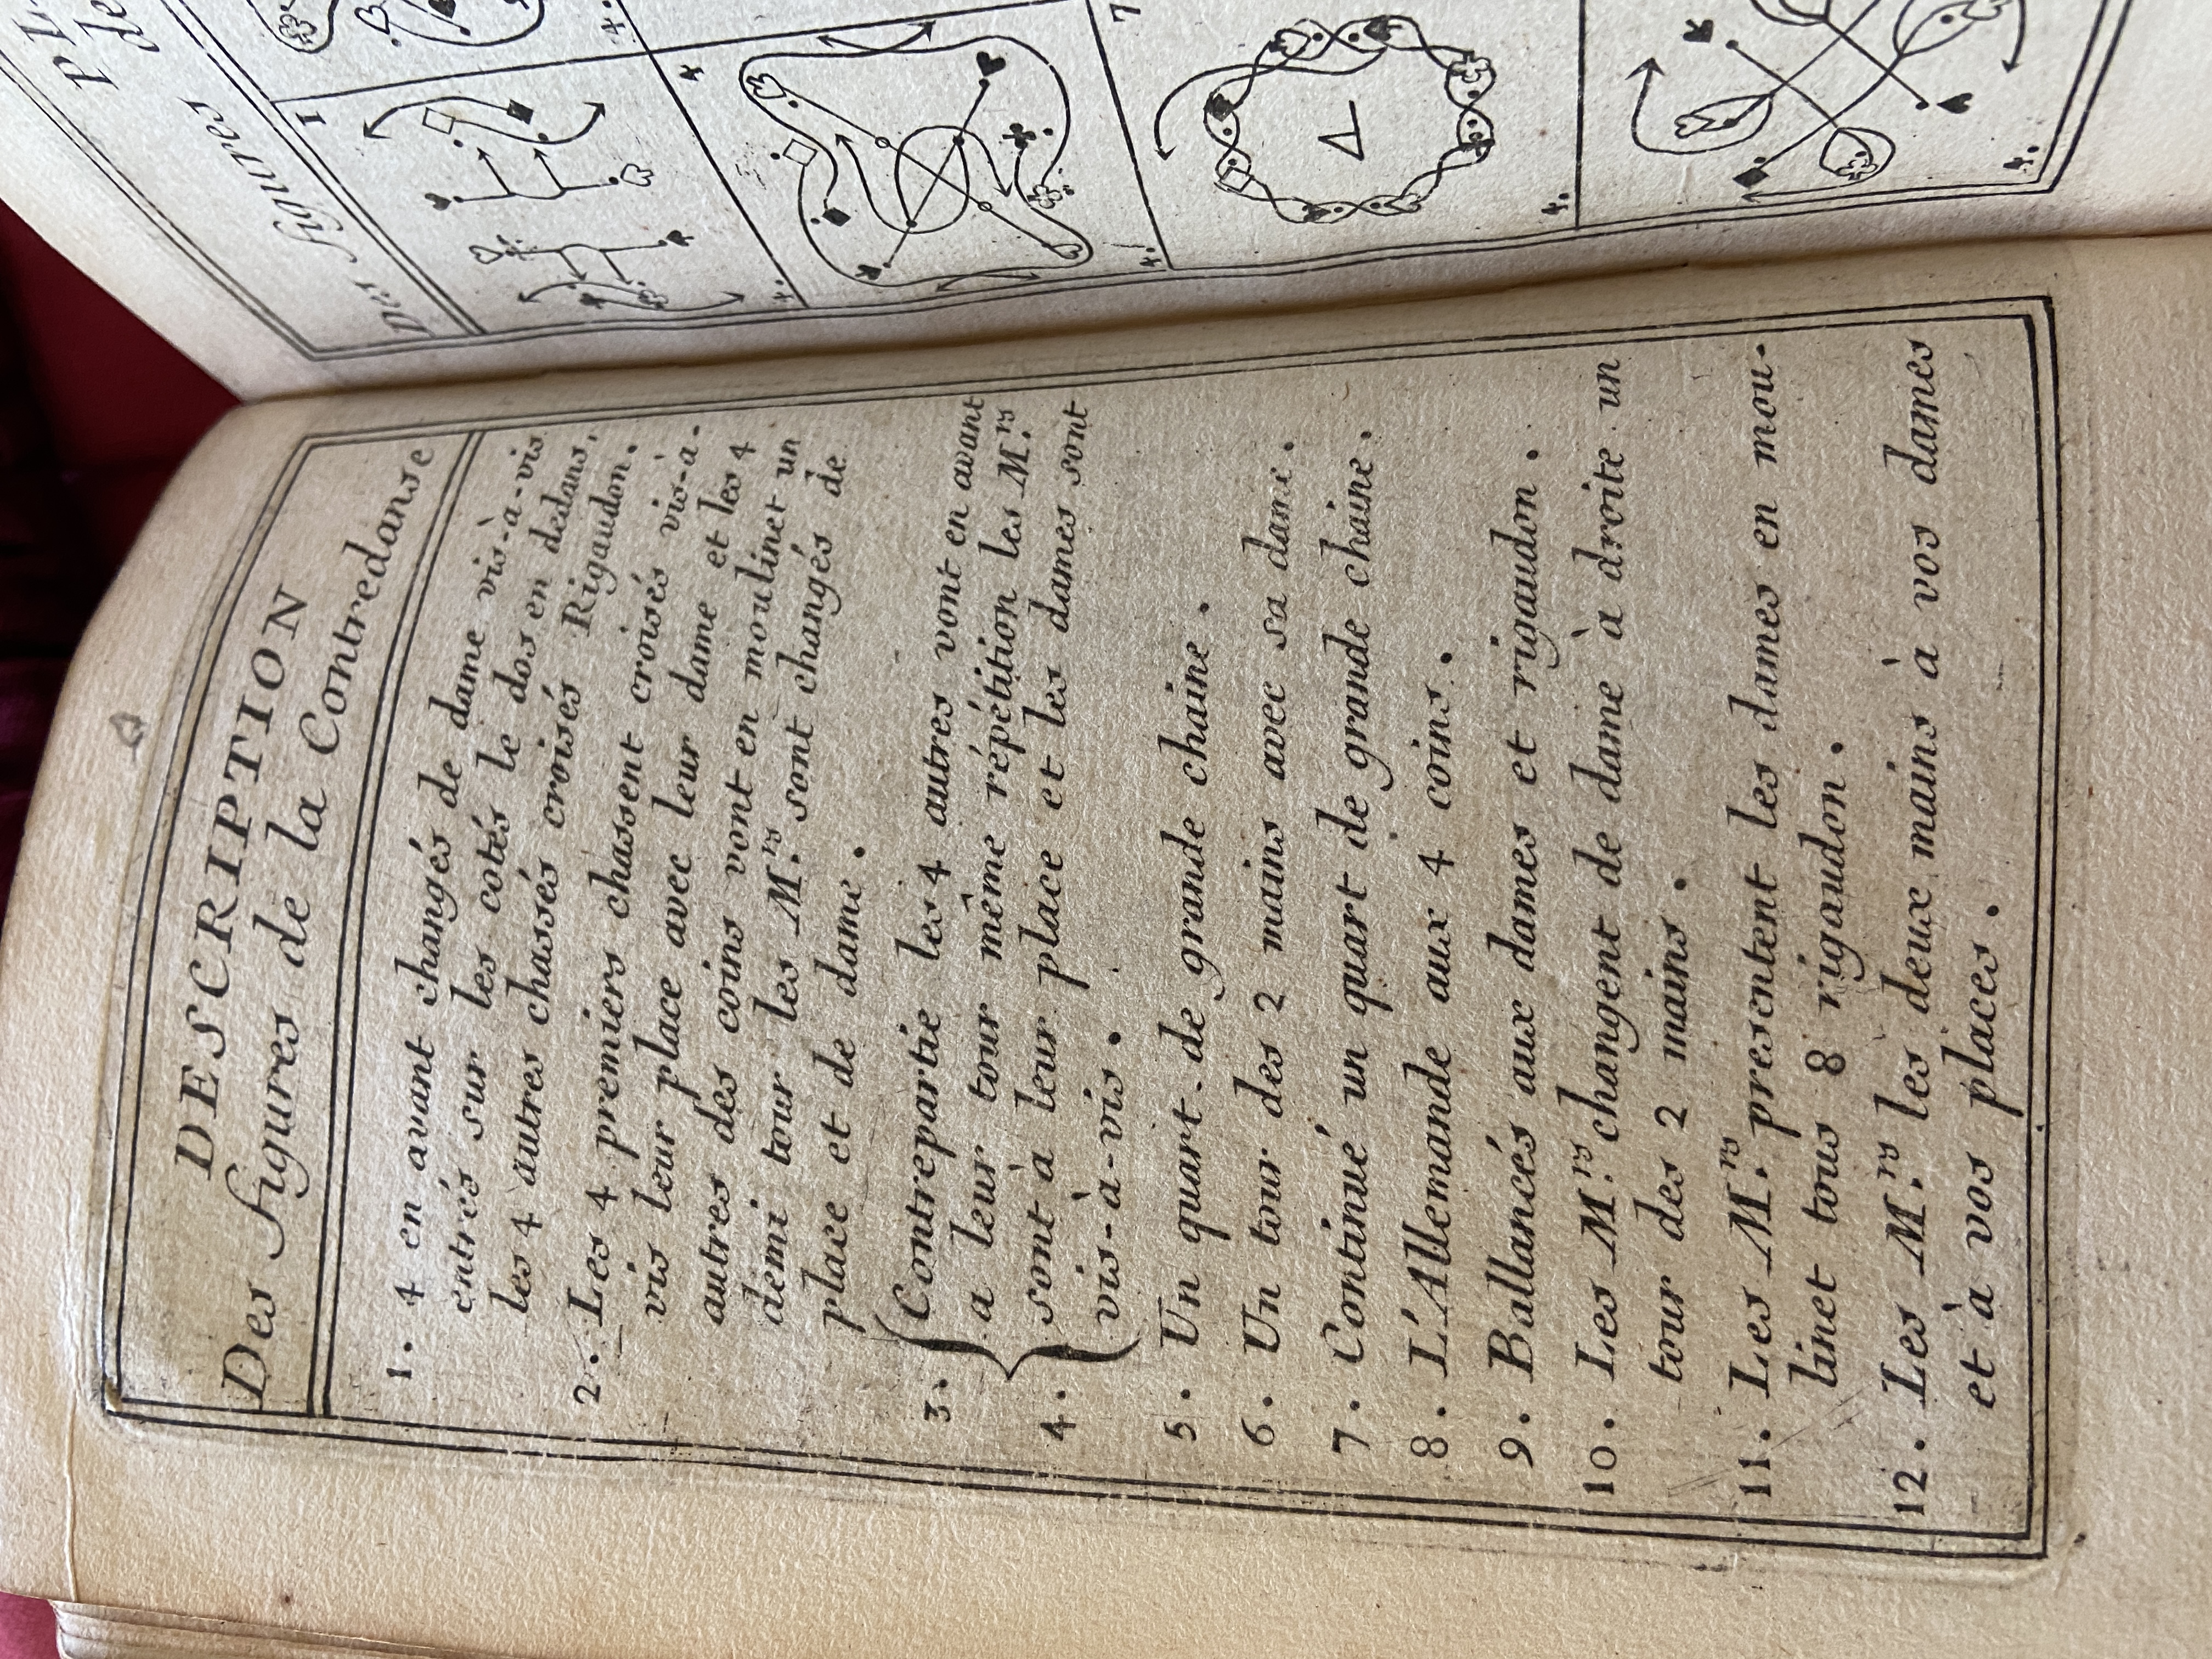 DESCRIPTION
Des figures de la Contredanse
1. 4 en avant changés de dame vis-à-vis
entrés sur les cotés le dos en dedans,
les 4 autres chassés croisés Rigaudon.
2. Les 4 premiers chassent croisés vis-à-
vis leur place avec leur dame et les 4
autres des coins vont en moulinet un
demi tour les M.rs sont changés de
place et de dame.
3. Contrepartie les 4 autres vont en avant
a leur tour même répétition les M.rs
4. sont à leur place et les dames sont
vis-à-vis.
5. Un quart de grande chaine.
6. Un tour des 2 mains avec sa dame.
7. Continué un quart de grande chaine.
8. L'Allemande aux 4 coins.
9. Ballancés aux dames et rigaudon.
10. Les M.rs changent de dame à droite un
tour des 2 mains.
11. Les M.rs presentent les dames en mou-
linet tous 8 rigaudon.
12. Les M.rs les deux mains à vos dames
et à vos places.
de
figures
Des
1
4.
4
7
4.
4.
4.